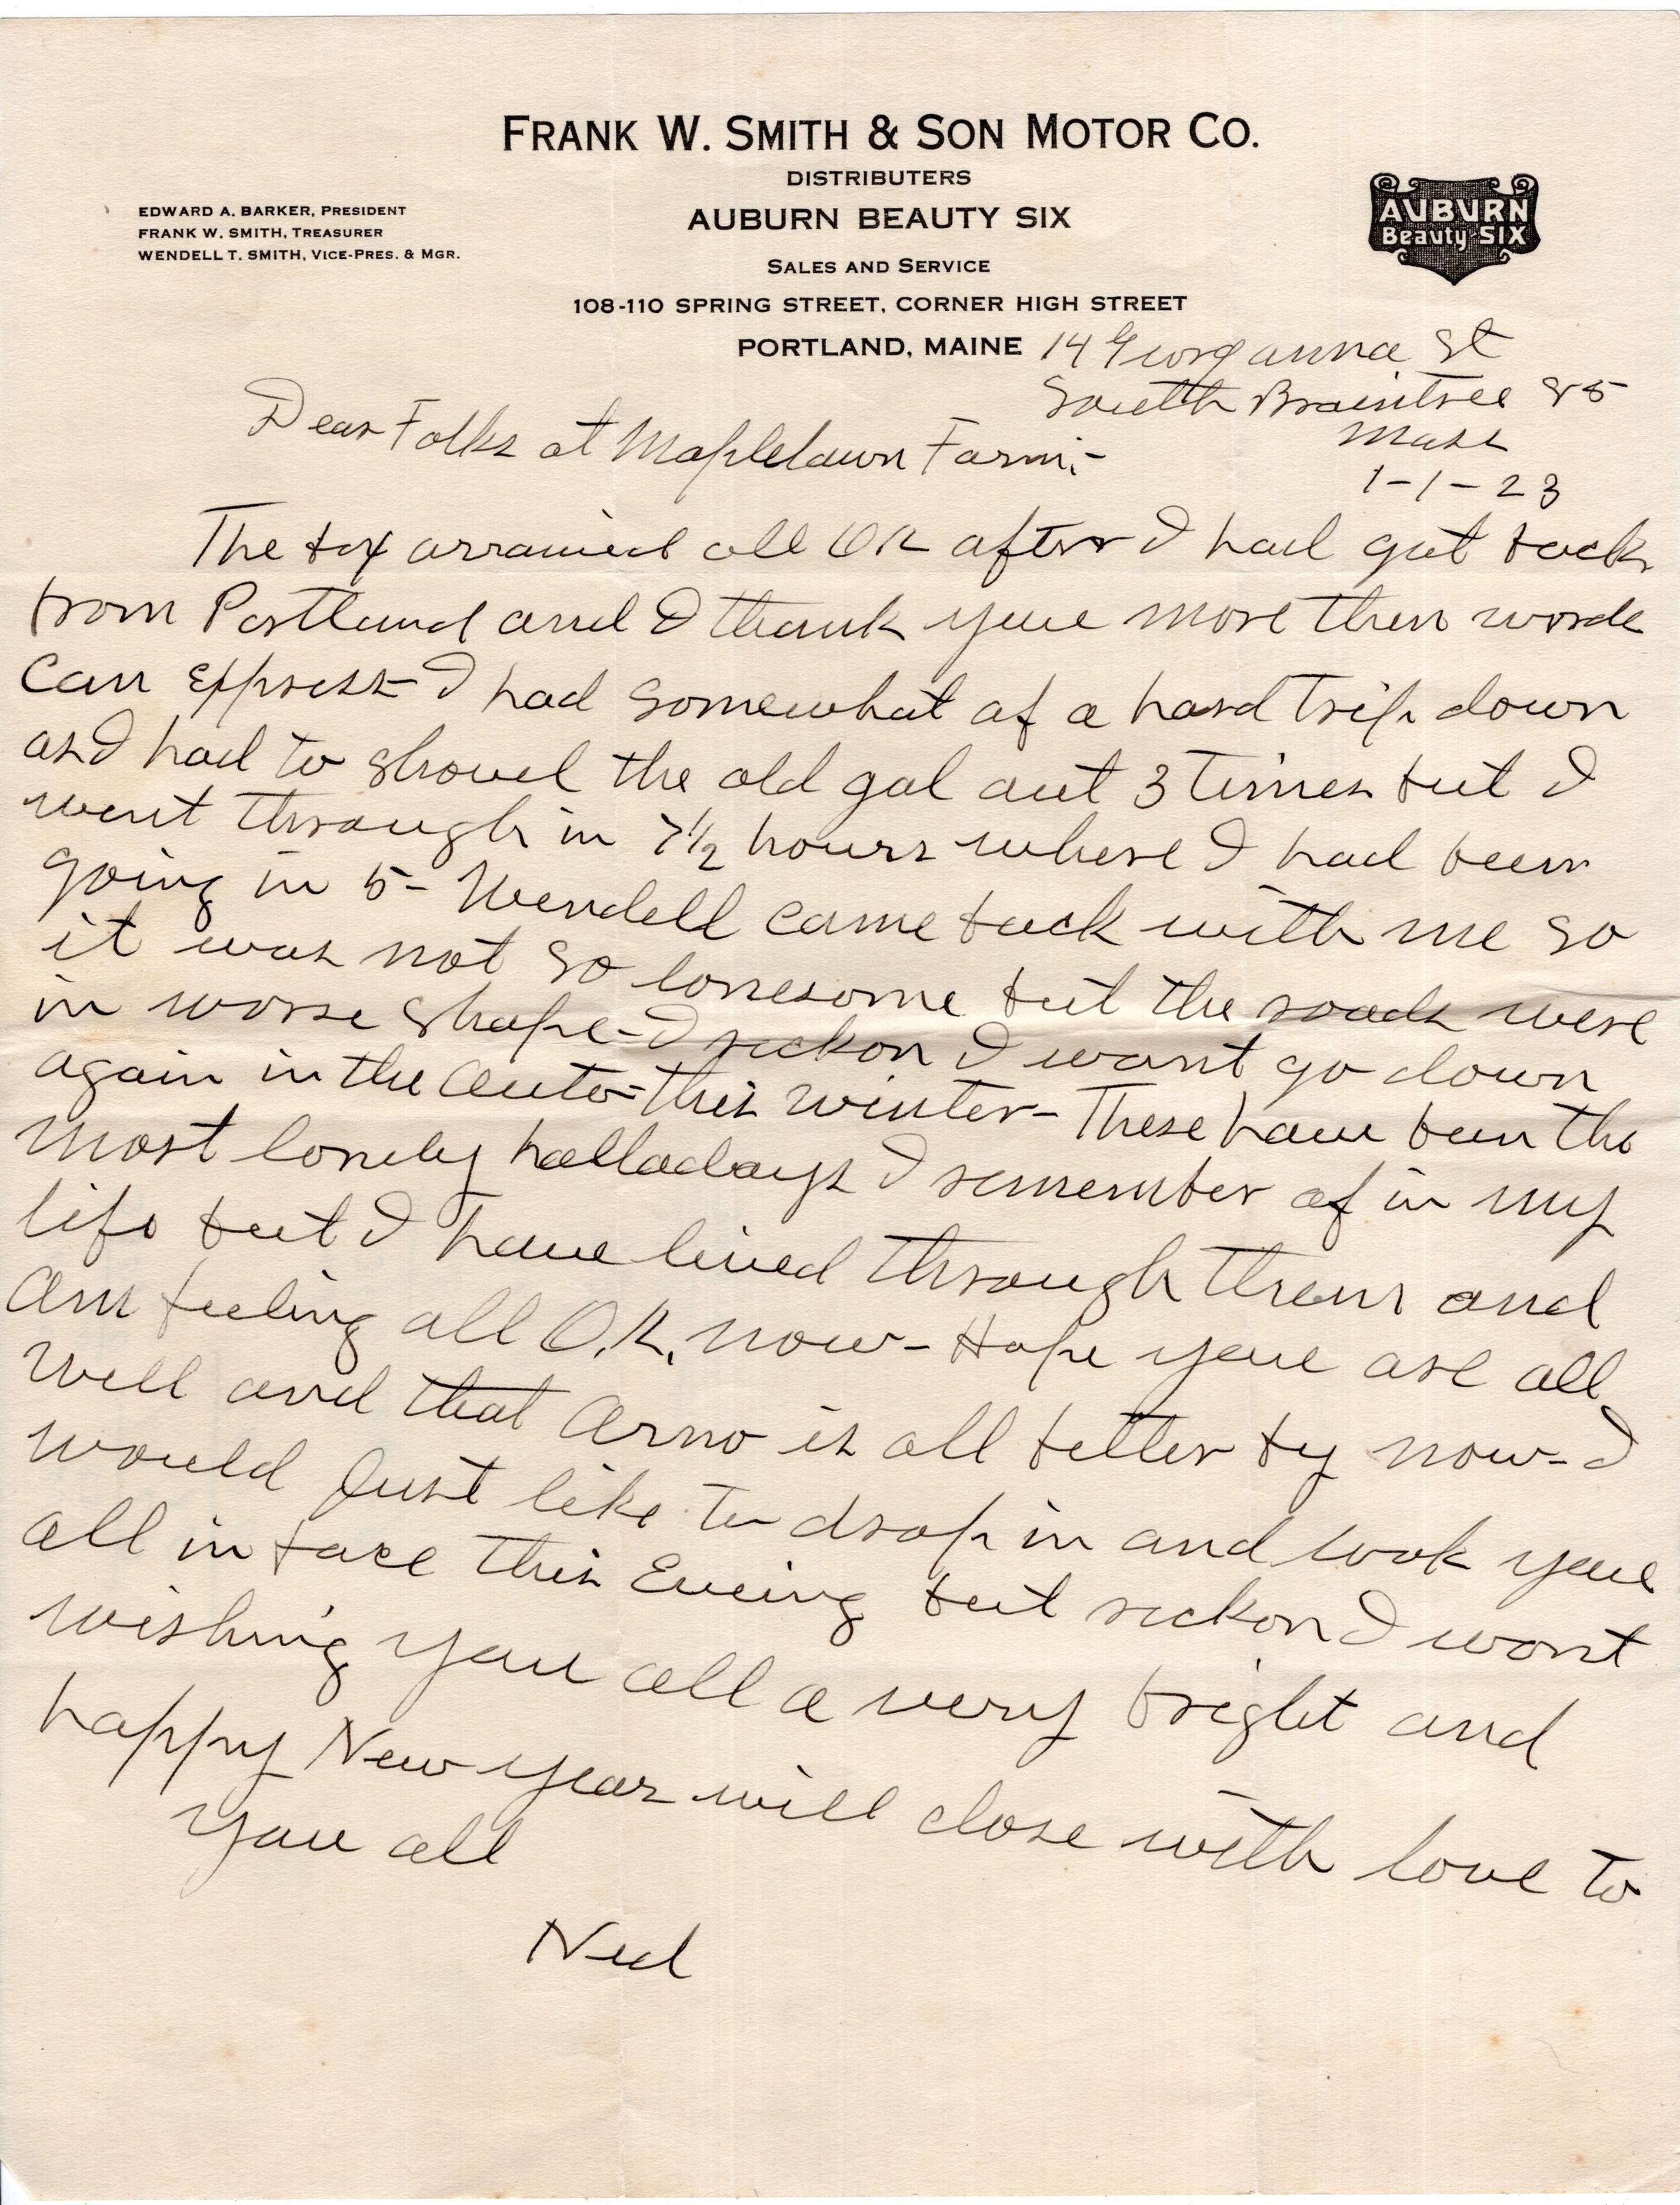 FRANK W. SMITH & SON MOTOR CO.
DISTRIBUTERS
AUBURN BEAUTY SIX
SALES AND SERVICE
108-110 SPRING STREET, CORNER HIGH STREET
PORTLAND, MAINE
EDWARD A. BARKER, PRESIDENT
FRANK W. SMITH, TREASURER
WENDELL T. SMITH, VICE-PRES. & MGR.
AUBURN
Beauty SIX
14 Georganna St
South Braintree 85
Mass
1-1-23
Dear Folks at Maplelawn Farm:-
The box arraived all OK after I had got back
from Portland and I thank youe more then words
can express - I had somewhat of a hard trip down
and had to shovel the old gal out 3 times but I
went through in 7½ hours where I had been
going in 5 - Wendell came back with me so
it was not so lonesome but the roads were
in worse shape - I reckon I wont go down
again in the auto - this winter - These have been the
most lonely holladays I remember of in my
life but I have lived through them and
am feeling all O.K. now - Hope youe are all
well and that Arno is all better by now - I
would Just like to drop in and look youe
all in face this Eveing but reckon I wont
wishing you all a very bright and
happy New year will close with love to
you all
Ned